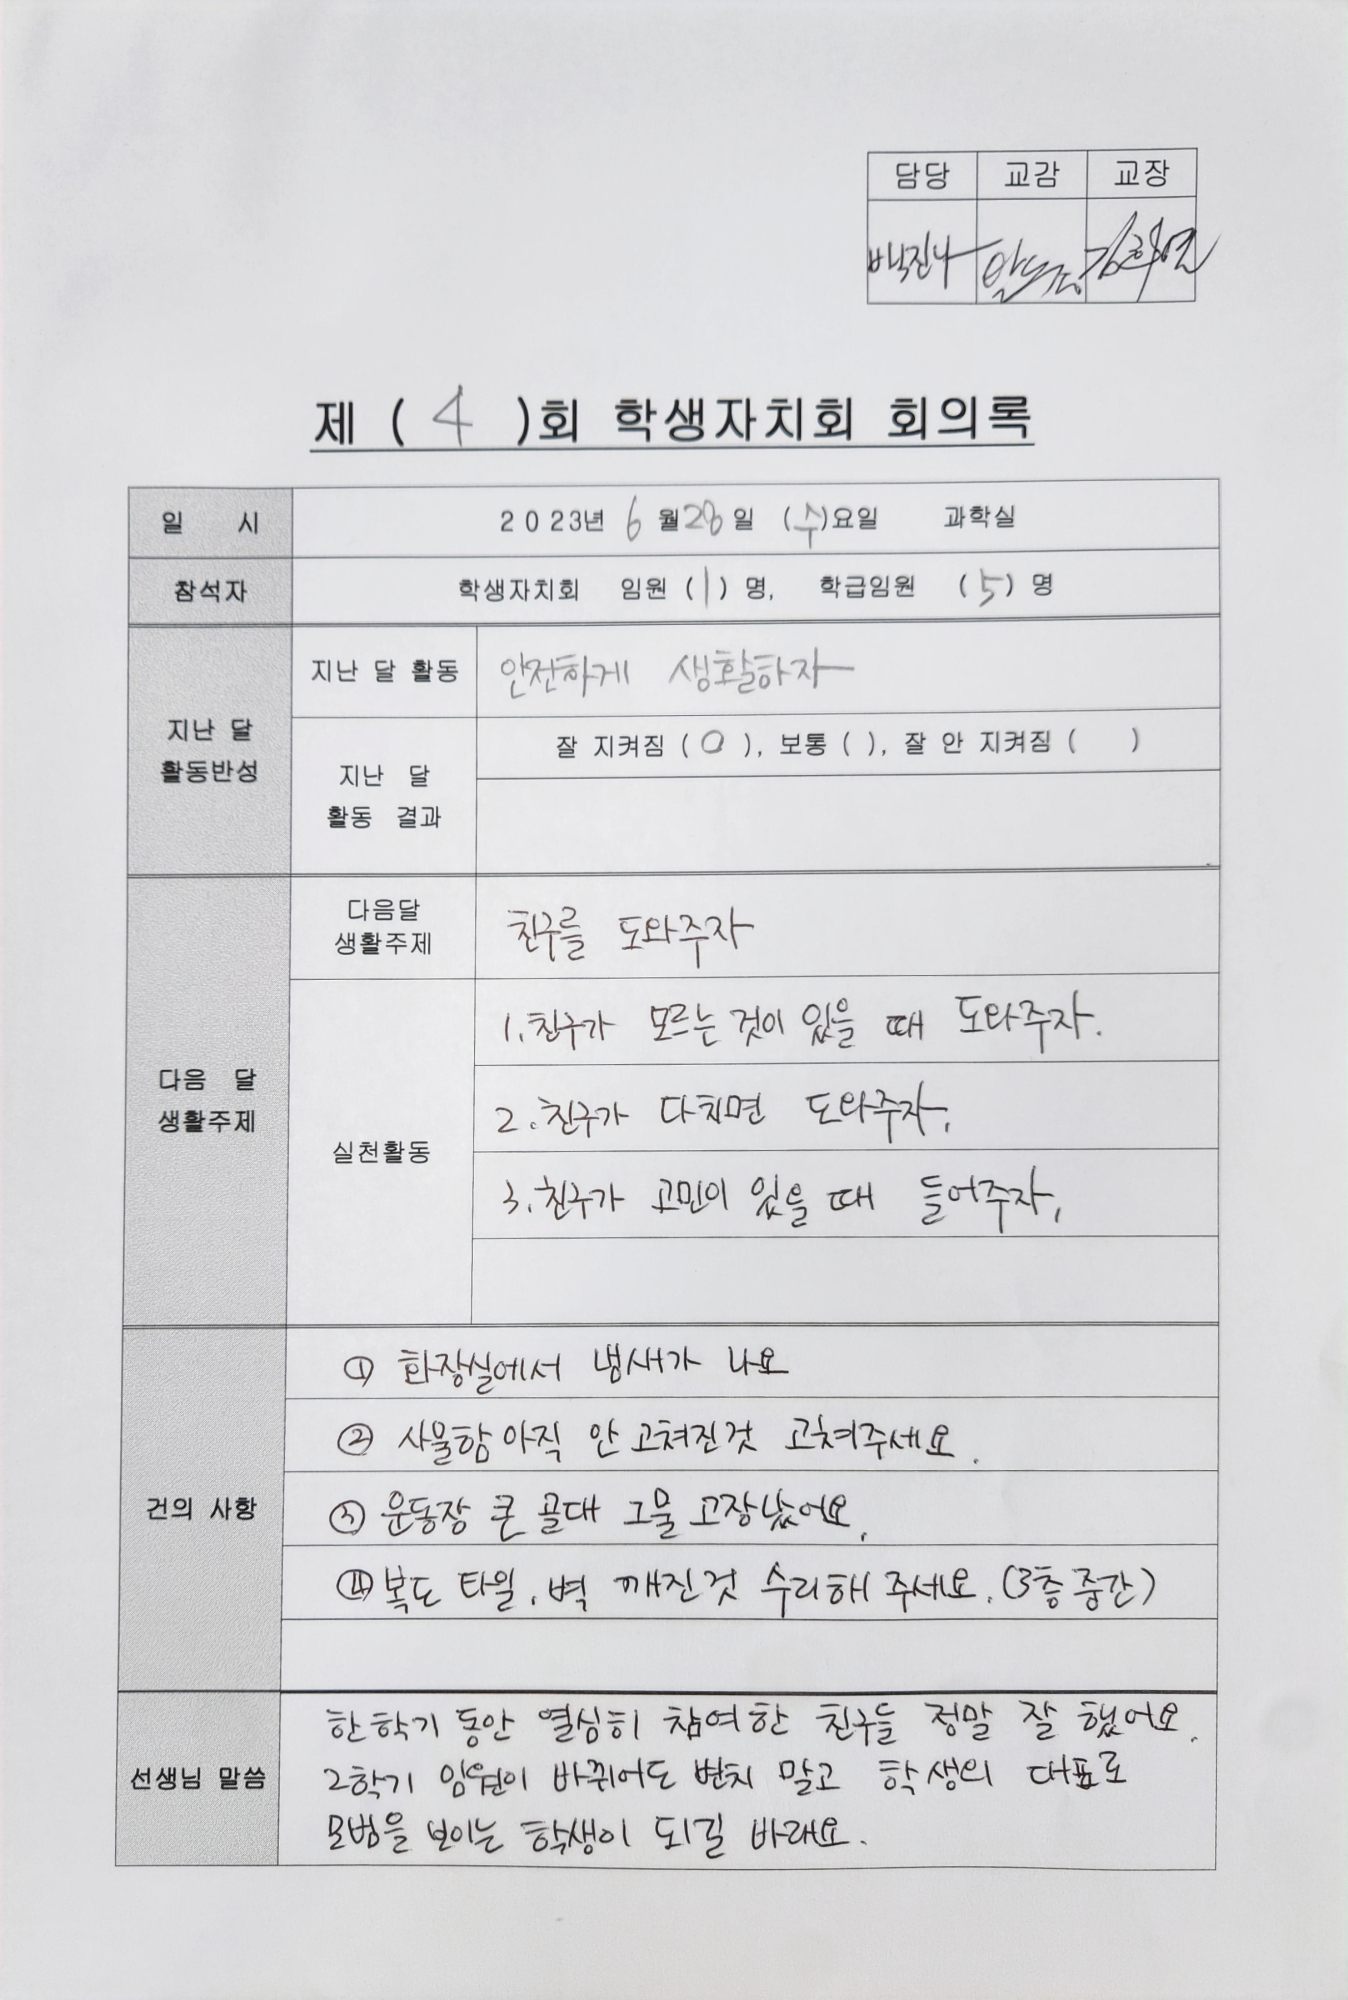 담당 교감 교장
백진나
제 ( 4 )회 학생자치회 회의록
일 시 2023년 6월 28일 (수)요일 과학실
참석자 학생자치회 임원 (1) 명, 학급임원 (5) 명
지난 달 활동반성
지난 달 활동 안전하게 생활하자
지난 달 활동 결과
잘 지켜짐 ( O ), 보통 ( ), 잘 안 지켜짐 ( )
다음 달 생활주제
다음달 생활주제 친구를 도와주자
실천활동
1. 친구가 모르는 것이 있을 때 도와주자.
2. 친구가 다치면 도와주자.
3. 친구가 고민이 있을 때 들어주자.
건의 사항
① 화장실에서 냄새가 나요
② 사물함 아직 안 고쳐진것 고쳐주세요.
③ 운동장 큰 골대 그물 고장났어요.
④ 복도 타일, 벽 깨진것 수리해 주세요. (3층 중간)
선생님 말씀
한학기 동안 열심히 참여한 친구들 정말 잘 했어요.
2학기 임원이 바뀌어도 변치 말고 학생의 대표로
모범을 보이는 학생이 되길 바래요.